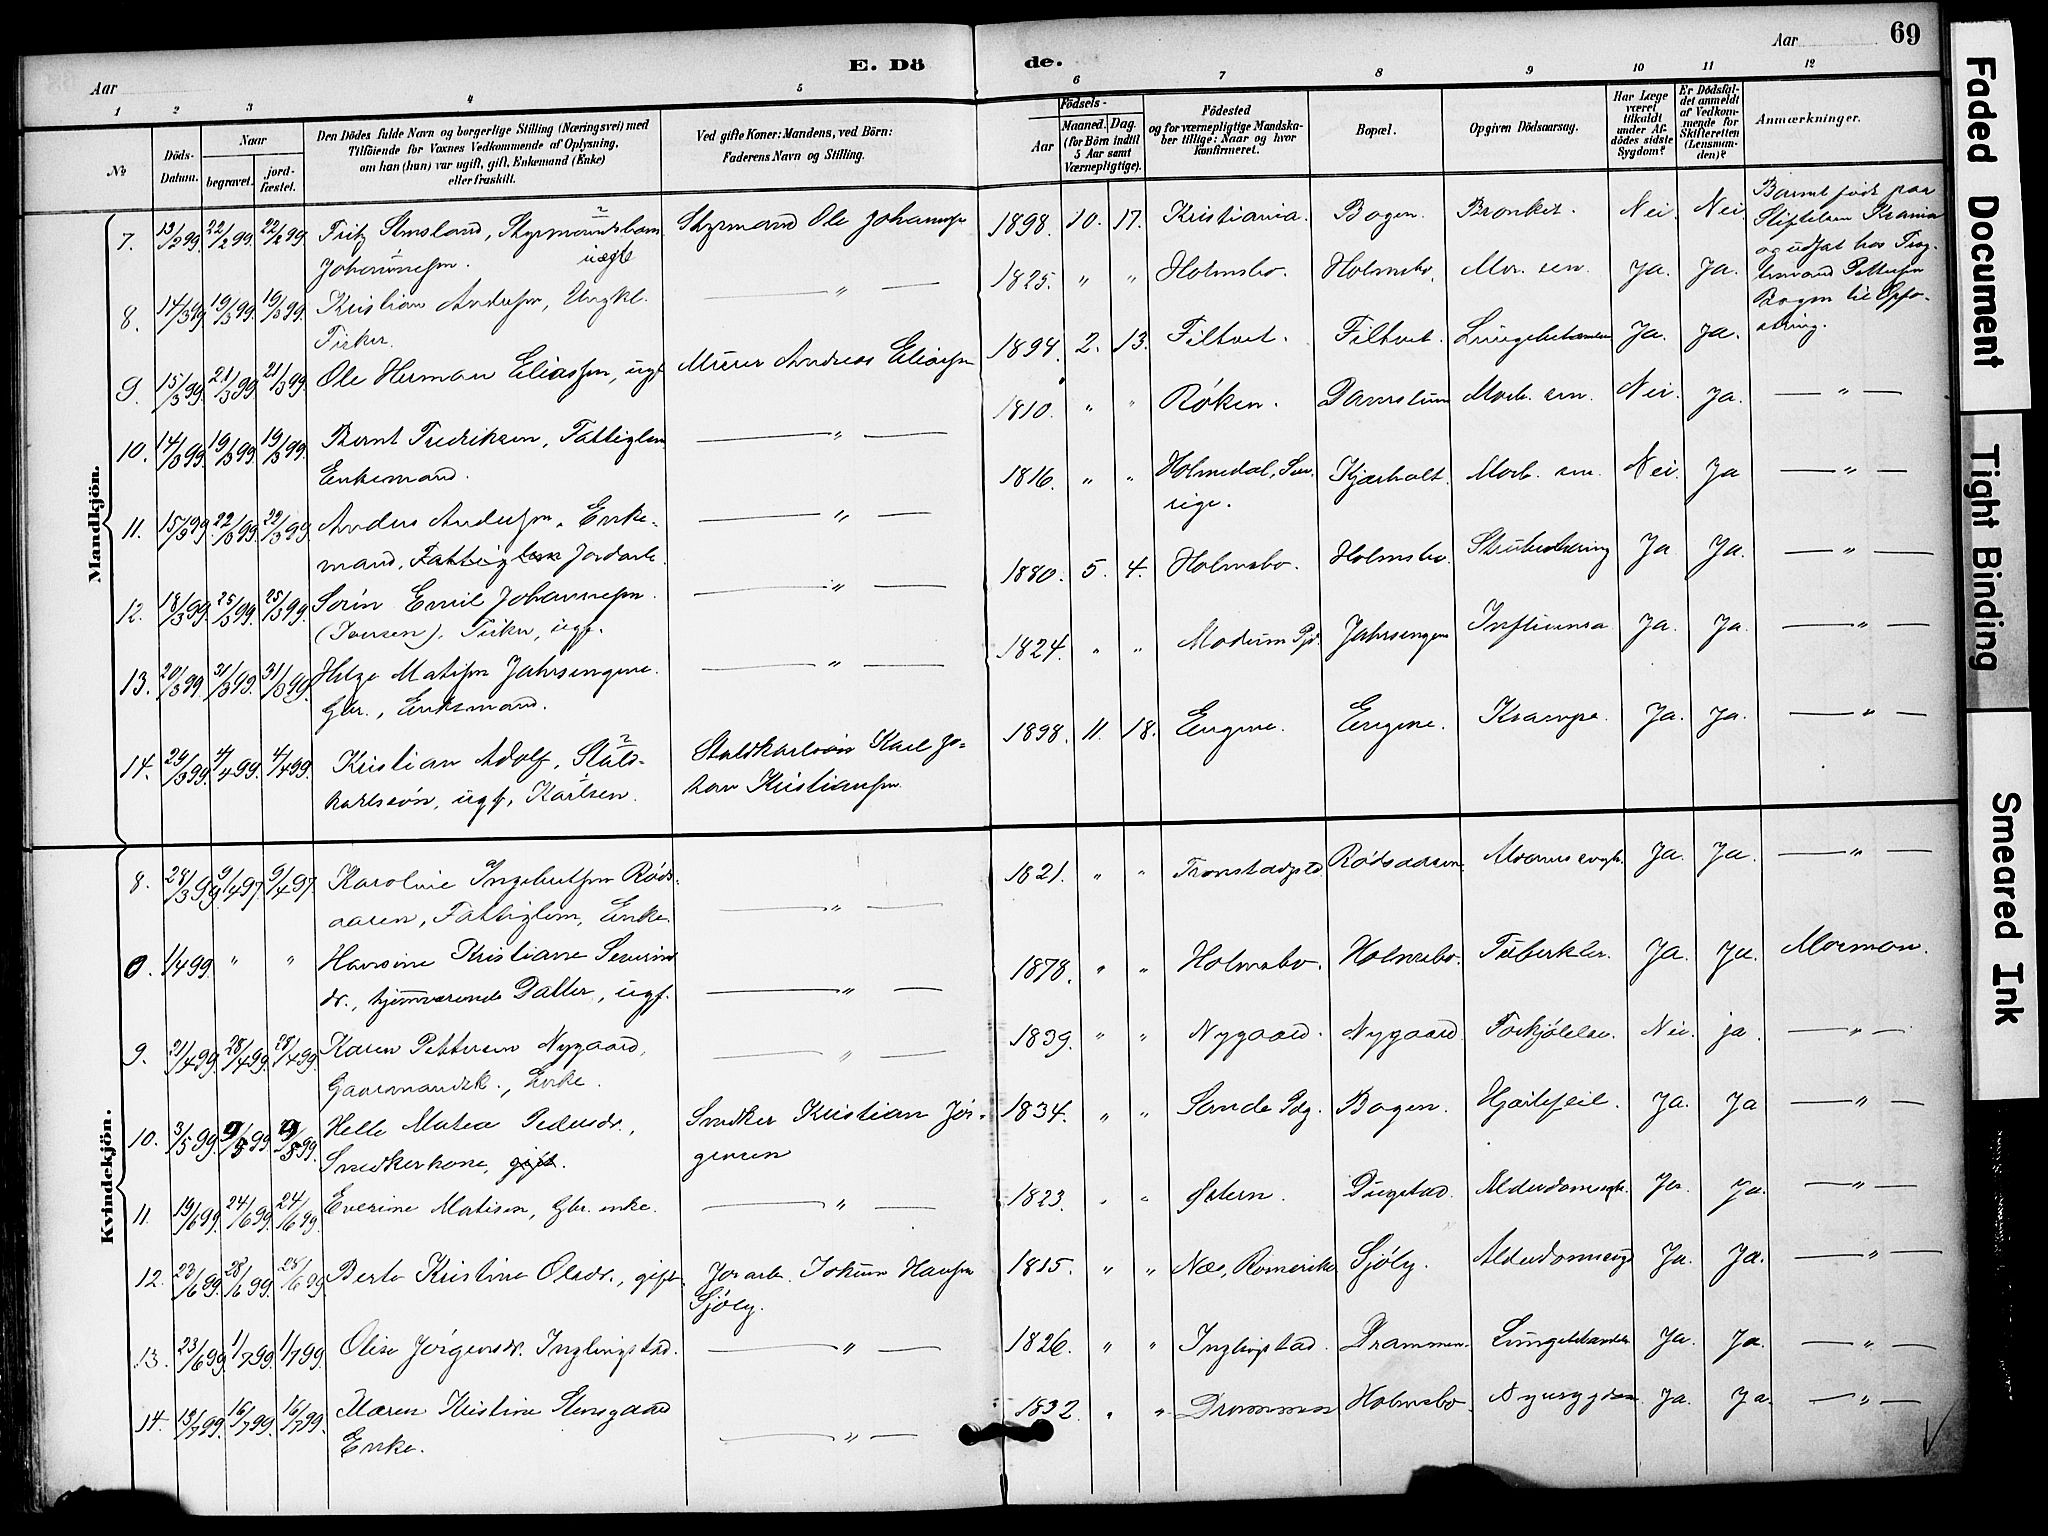 Aar
E. Dö
de.
Aar
69
1 2 3 4 5 6 7 8 9 10 11 12
№
Döds-
Datum.
Naar
begravet.
jord-
fæstet.
Den Dödes fulde Navn og borgerlige Stilling (Næringsvei) med
Tilföiende for Voxnes Vedkommende af Oplysning,
om han (hun) var ugift, gift, Enkemand (Enke)
eller fraskilt.
Ved gifte Koner: Mandens, ved Börn:
Faderens Navn og Stilling.
Födsels-
Aar
Maaned. Dag.
(for Börn indtil
5 Aar samt
Værnepligtige).
Födested
og for værnepligtige Mandska-
ber tillige: Naar og hvor
konfirmeret.
Bopæl.
Opgiven Dödsaarsag.
Har Læge
været
tilkaldt
under Af-
dödes sidste
Sygdom?
Er Dödsfal-
det anmeldt
af Vedkom-
mende for
Skifteretten
(Lensman-
den)?
Anmærkninger.
Mandkjön.
7. 13/2 99. 22/2 99. 22/2 99. Fritz Styrmandsbarn uægte
Styrmand Ole 1898. 10. 17. Kristiania. Bogen. Bronkit. Nei. Nei
Barnet født paa
Stiftelsen Krania
og udsat hos
Pettersen
Bogen til Opfo-
string.
8. 14/3 99. 19/3 99. 19/3 99. Kristian Andersen, Ungkl.
Fisker.
— " — 1825. " " Holmsbo. Holmsbo. Mor. sen. Ja. Ja.
9. 15/3 99. 21/3 99. 21/3 99. Ole Herman Eliassen, ugf
Murer Andreas Eliassen 1894. 2. 13. Filtvet. Filtvet. Ja. Ja.
10. 14/3 99. 19/3 99. 19/3 99. Bernt Fredriksen, Fattiglem
Enkemand.
— " — 1810. " " Røken. Morb. sen. Nei. Ja. — " —
11. 15/3 99. 22/3 99. 22/3 99. Anders Andersen, Enke-
mand, Fattiglem Jordarb.
— " — 1816. " " Holmedal, Sve-
rige. Kjærholt. Morb. sen. Nei. Ja — " —
12. 18/3 99. 25/3 99. 25/3 99. Sørin Emil Johannesen
(Iversen). Fisker, ugf.
— " — 1880. 5. 4. Holmsbo. Holmsbo. Ja Ja. — " —
13. 20/3 99. 31/3 99. 31/3 99. Helge Matisen Jahrsengene.
Gbr., Enkemand.
— " — 1824. " " Modum Pgd. Jahrsengene Influensa Ja. Ja. — " —
14. 29/3 99. 4/4 99. 4/4 99. Kristian Adolf, Stald-
karlsøn, ugf, Karlsen.
Staldkarl Karl Jo-
han Kristiansen 1898. 11. 18. Engene. Engene. Krampe. Ja. Ja. — " —
Kvindekjön.
8. 28/3 99. 9/4 97. 9/4 97. Karoline Ingebretsen Røds-
aasen, Fattiglem, Enke.
— " — 1821. " " Rødsaasen. Ja. Ja. — " —
0. 1/4 99. " " Hansine Kristiane Severins
dr., hjemværende Datter, ugf.
— " — 1878. " " Holmsbo. Holmsbo. Tuberkler. Ja. Ja. Mormon.
9. 21/4 99. 28/4 99. 28/4 99. Karen Pettersen Nygaard,
Gaarmandsk., Enke.
— " — 1839. " " Nygaard. Nygaard. Forkjølelse. Nei ja. — " —
10. 3/5 99. 9/5 99. 9/5 99. Helle Matea Pedersdr.,
Snedkerkone, gift.
Snedker Kristian Jør-
gensen 1834. " " Sande Pdg. Bogen. Hjertefeil. Ja. Ja — " —
11. 19/6 99. 24/6 99. 24/6 99. Everine Matisen, Gbr. enke.
— " — 1823. " " Østern. Ja. Ja. — " —
12. 23/6 99. 28/6 99. 28/6 99 Berte Kristine Olsdr., gift.
Jorarb. Jokum Hansen
Sjøly. 1815. " " Næs, Romerike Sjøly. Ja. Ja. — " —
13. 23/6 99. 1/7 99. 1/7 99. Olise Jørgensdr. Inglingstad.
— " — 1826. " " Inglingstad. Drammen. Ja. Ja. — " —
14. 13/7 99. 16/7 99. 16/7 99. Maren Kristine Stensgaard
Enke.
— " — 1832. " " Drammen Holmsbo. Nyresygdom Ja. Ja. — " —
Faded Document
Tight Binding
Smeared Ink